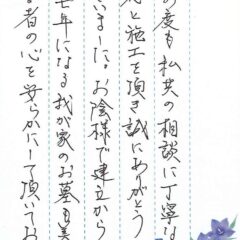 の度も私共の相談に丁寧な
と施工を頂き誠にありがとう
いました。お陰様で建立から
七年になる我が家のお墓も美
者の心を安らかにして頂いてお